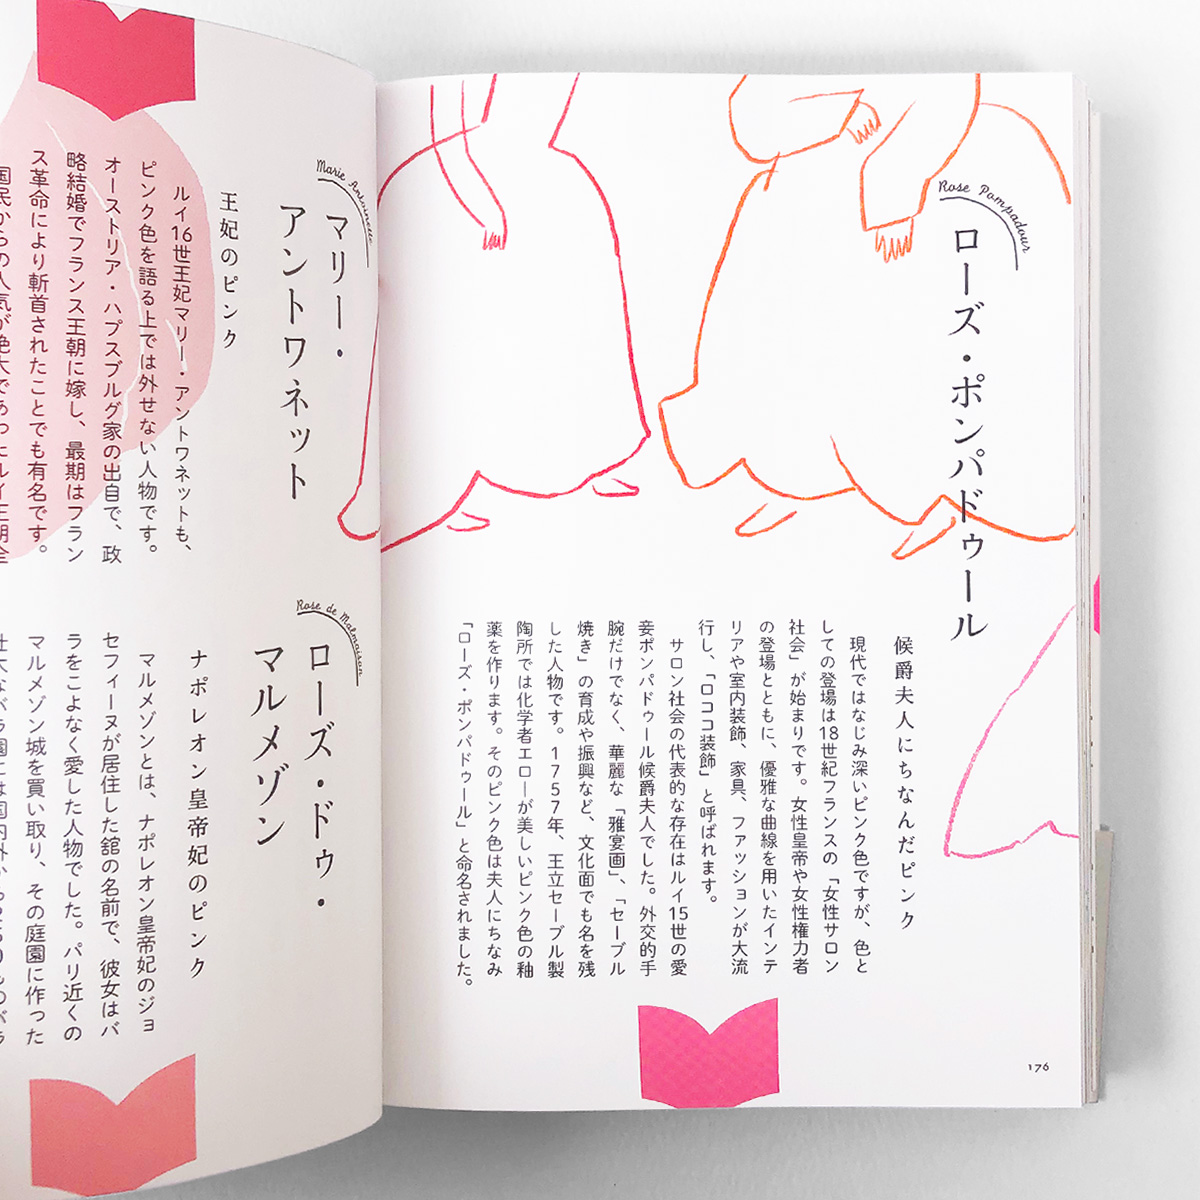 Rose Pompadour
ローズ・ポンパドゥール
候爵夫人にちなんだピンク
現代ではなじみ深いピンク色ですが、色と
しての登場は18世紀フランスの「女性サロン
社会」が始まりです。女性皇帝や女性権力者
の登場とともに、優雅な曲線を用いたインテ
リアや室内装飾、家具、ファッションが大流
行し、「ロココ装飾」と呼ばれます。
サロン社会の代表的な存在はルイ15世の愛
妾ポンパドゥール候爵夫人でした。外交的手
腕だけでなく、華麗な「雅宴画」、「セーブル
焼き」の育成や振興など、文化面でも名を残
した人物です。1757年、王立セーブル製
陶所では化学者エローが美しいピンク色の釉
薬を作ります。そのピンク色は夫人にちなみ
「ローズ・ポンパドゥール」と命名されました。
176
Marie Antoinette
マリー・
アントワネット
王妃のピンク
ルイ16世王妃マリー・アントワネットも、
ピンク色を語る上では外せない人物です。
オーストリア・ハプスブルグ家の出自で、政
略結婚でフランス王朝に嫁し、最期はフラン
ス革命により斬首されたことでも有名です。
国民からの人気が絶大であったルイ王朝全
Rose de Malmaison
ローズ・ドゥ・
マルメゾン
ナポレオン皇帝妃のピンク
マルメゾンとは、ナポレオン皇帝妃のジョ
セフィーヌが居住した舘の名前で、彼女はバ
ラをこよなく愛した人物でした。パリ近くの
マルメゾン城を買い取り、その庭園に作った
壮大なバラ園には国内外から250ものバラ